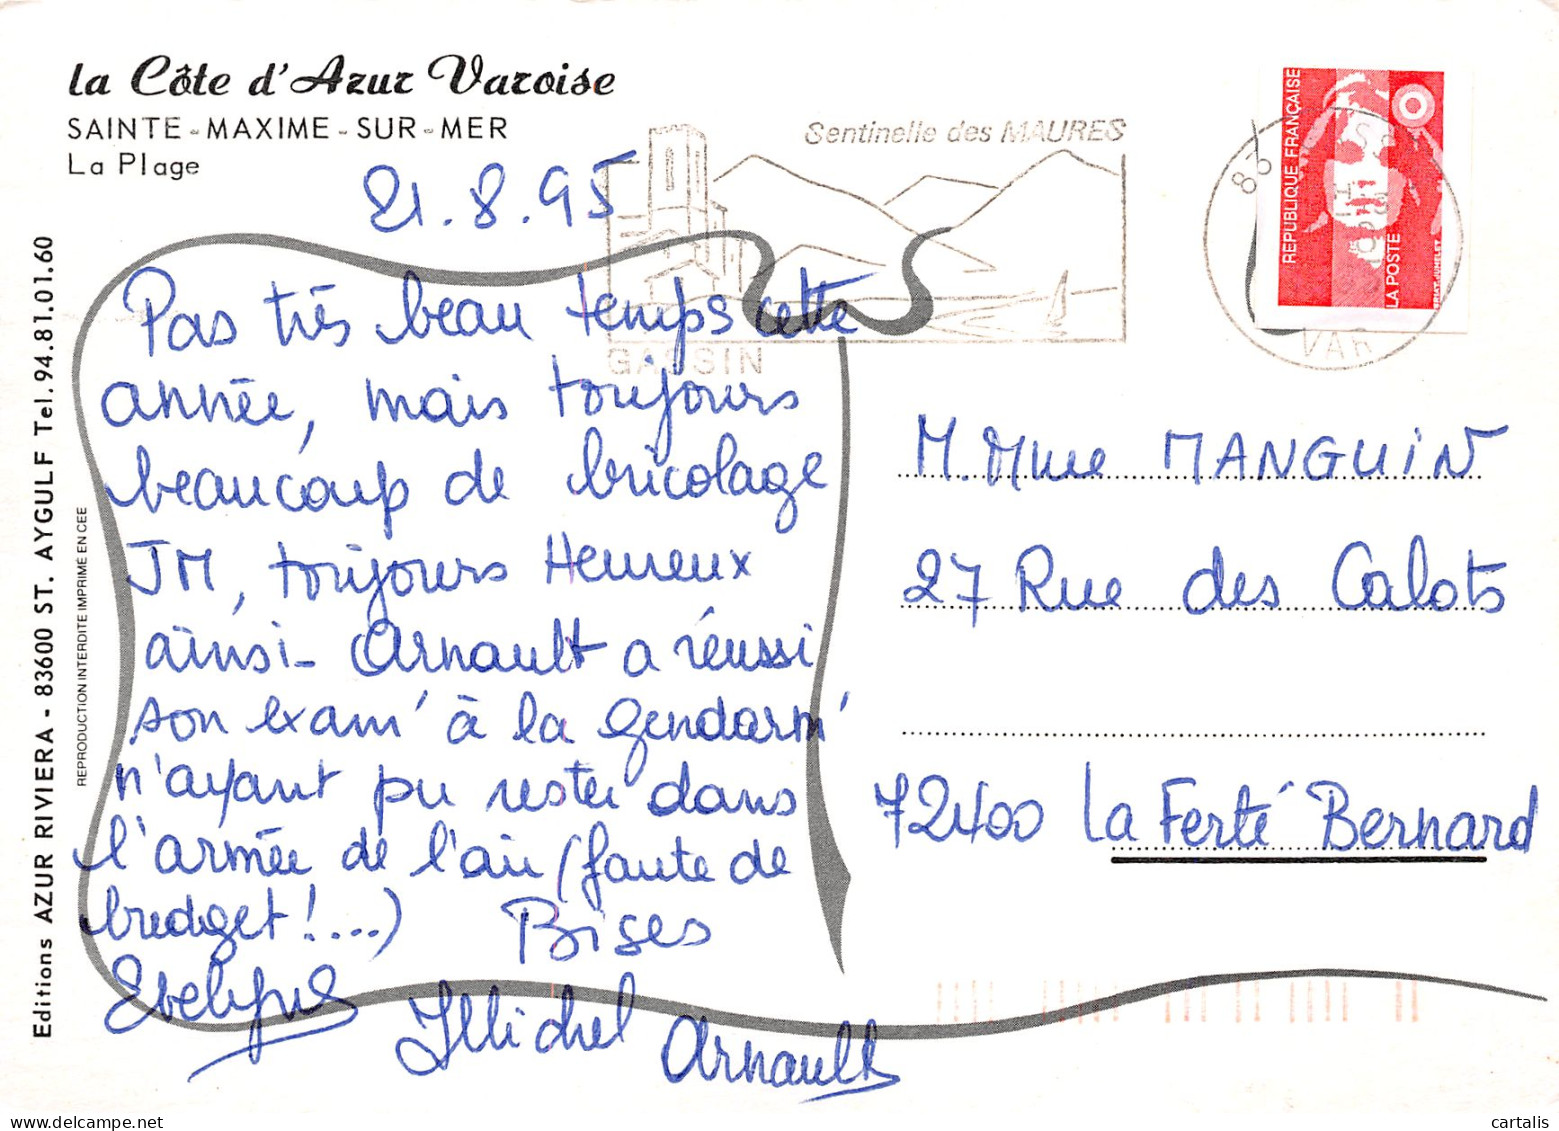 la Côte d'Azur Varoise
SAINTE-MAXIME-SUR-MER
La Plage
21.8.95
Sentinelle des MAURES
GASSIN
83
VAR
REPUBLIQUE FRANÇAISE
LA POSTE
Pas très beau temps cette
année, mais toujours
beaucoup de bricolage
JM, toujours Heureux
ainsi_ Arnault a réussi
son exam' à la gendarm'
n'ayant pu rester dans
l'armée de l'air (faute de
budget !...) Bises
Evelyne
JMichel
Arnault
M. Mme MANGUIN
27 Rue des Calots
72400 La Ferté Bernard
Editions AZUR RIVIERA - 83600 ST. AYGULF Tel. 94.81.01.60
REPRODUCTION INTERDITE IMPRIME EN CEE
cartalis